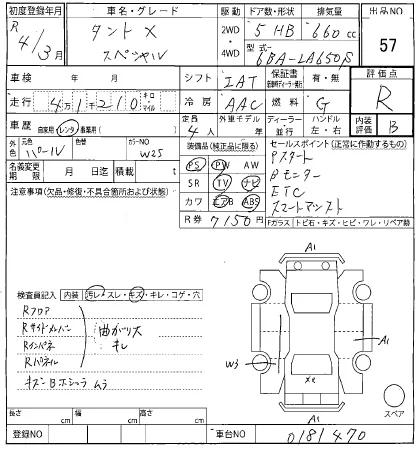 初度登録年月 車名・グレード 駆動 ドア数・形状 排気量 出品NO
R 4/3月 タントX スペシャル 2WD・4WD 5 HB 660cc 57
型式 6BA-LA650S
車検 年 月 シフト IAT 保証書 有・無 評価点
走行 4万1千210 キロ・マイル 冷房 AAC 燃料 G R
車歴 自家用・レンタ・事業用( ) 定員 4人 外車モデル 年 ディーラー・並行 ハンドル 左・右 内装評価 B
外色 元色 パール 色替 カラーNO W25
装備品(純正品に限る) セールスポイント(正常に作動するもの)
名義変更期限 月 日迄 積載 t
PS PW AW Pスタート
SR TV ナビ Bモニター
カワ エアB ABS ETC
スマートアシスト
注意事項(欠品・修復・不具合箇所および状態)
R券 7150円
Fガラス・トビ石・キズ・ヒビ・ワレ・リペア跡
A1
検査員記入 内装 汚レ・スレ・キズ・キレ・コゲ・穴
Rフロア
Rサイドメンバー 曲がり大
Rインパネ キレ
Rパネル
W3
A1
X2
キズ
スペア
A1
長さ cm 幅 cm 高さ cm
登録NO 車台NO 0181470